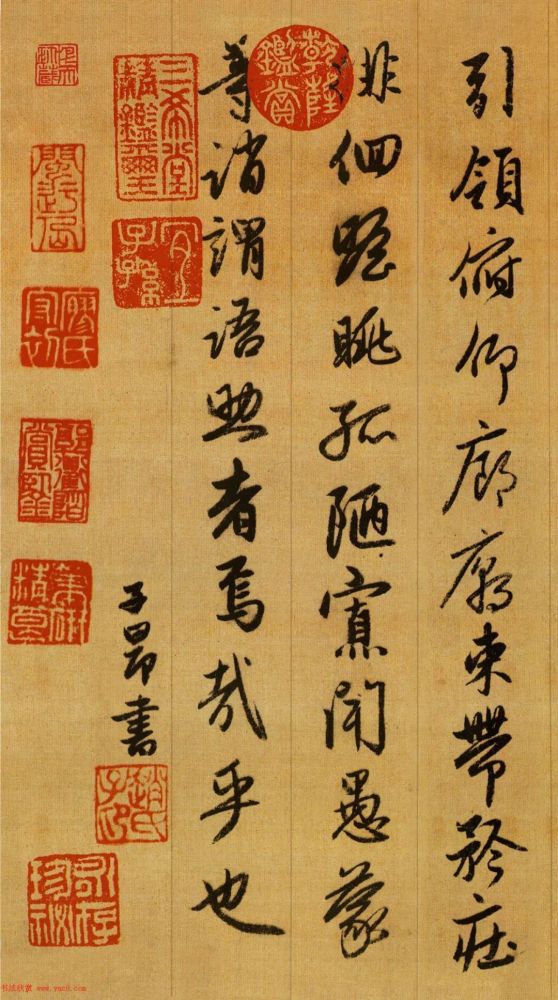 引領俯仰廊廟束帶矜庄
徘徊瞻眺孤陋寡聞愚蒙
等誚謂語助者焉哉乎也
子昂書
乾隆鑑賞
三希堂精鑑璽
宜子孫
趙氏子昂
书法欣赏 www.yac8.com